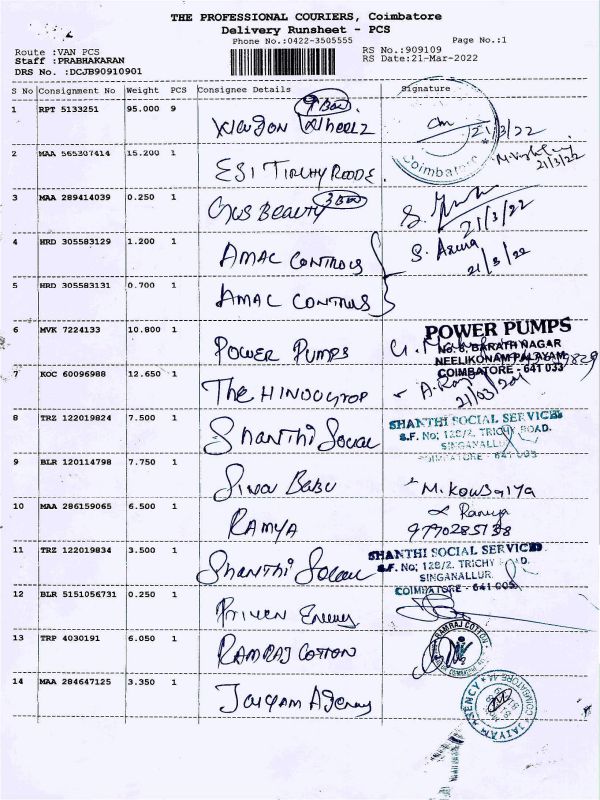 THE PROFESSIONAL COURIERS, Coimbatore
Delivery Runsheet - PCS
Phone No.:0422-3505555
Page No.:1
Route :VAN PCS
RS No.:909109
Staff :PRABHAKARAN
RS Date:21-Mar-2022
DRS No. :DCJB90910901
S No Consignment No Weight PCS Consignee Details Signature
1 RPT 5133251 95.000 9
Wheelz
21/3/22
Coimbatore
2 MAA 565307414 15.200 1
ESI
21/3/22
3 MAA 289414039 0.250 1
Beauty
21/3/22
4 HRD 305583129 1.200 1
AMAC CONTROLS
21/3/22
5 HRD 305583131 0.700 1
AMAC CONTROLS
6 MVK 7224133 10.800 1
POWER PUMPS
POWER PUMPS
BARATH NAGAR
NEELIKONAM PALAYAM
COIMBATORE - 641 033
7 KOC 60096988 12.650 1
The HINDU
8 TRZ 122019824 7.500 1
Shanthi Social
SHANTHI SOCIAL SERVICES
S.F. No; 128/2, TRICHY ROAD.
SINGANALLUR
COIMBATORE - 641 005
9 BLR 120114798 7.750 1
Babu
M. Kowsalya
10 MAA 286159065 6.500 1
RAMYA
Ramya
9770285738
11 TRZ 122019834 3.500 1
Shanthi Social
SHANTHI SOCIAL SERVICES
S.F. No; 128/2, TRICHY ROAD.
SINGANALLUR
COIMBATORE - 641 005
12 BLR 5151056731 0.250 1
Energy
13 TRP 4030191 6.050 1
RAMRAJ COTTON
RAMRAJ COTTON
14 MAA 284647125 3.350 1
Jaiyam Agency
JAIYAM AGENCY
COIMBATORE